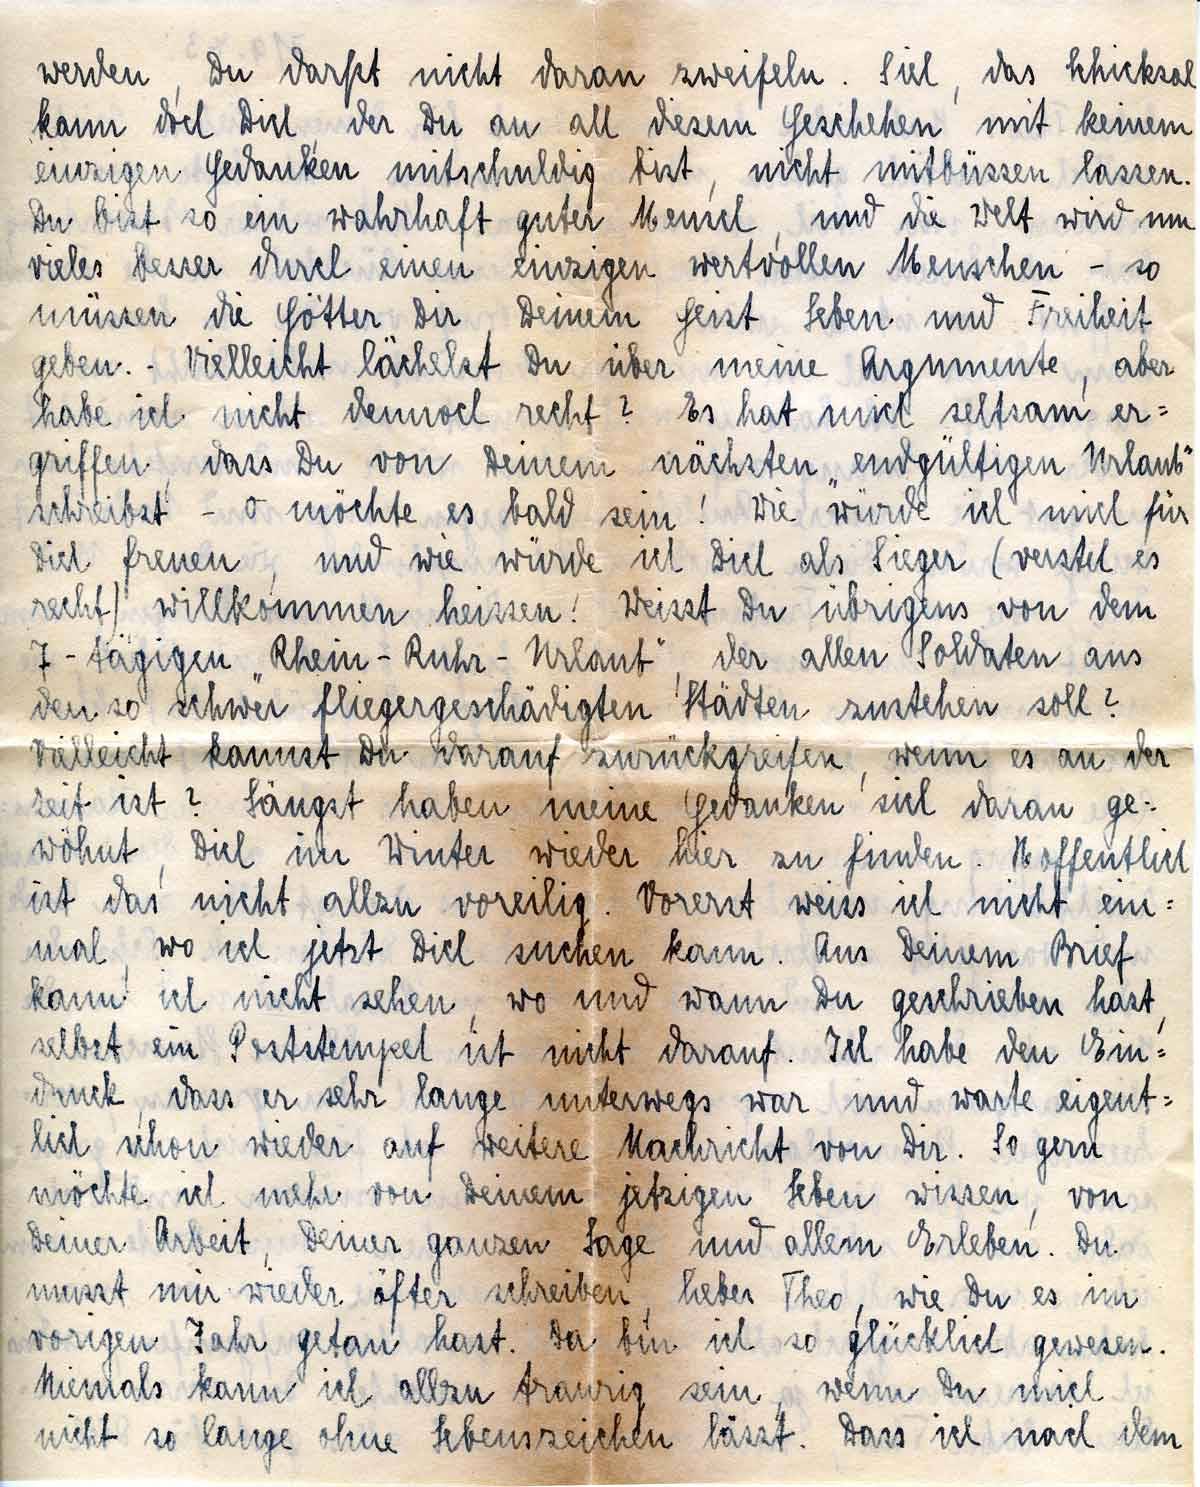 werden, Du darfst nicht daran zweifeln. Sieh, das Schicksal
kann doch Dich, der Du an all diesem Geschehen mit keinem
einzigen Gedanken mitschuldig bist, nicht mitbüssen lassen.
Du bist so ein wahrhaft guter Mensch, und die Welt wird um
vieles besser durch einen einzigen wertvollen Menschen - so
müssen die Götter Dir, Deinem Geist Leben und Freiheit
geben. - Vielleicht lächelst Du über meine Argumente, aber
habe ich nicht dennoch recht? Es hat mich seltsam er=
griffen, dass Du von Deinem nächsten „endgültigen Urlaub"
schreibst - o möchte es bald sein! Wie würde ich mich für
Dich freuen, und wie würde ich Dich als Sieger (versteh es
recht) willkommen heissen! Weisst Du übrigens von dem
7-tägigen „Rhein-Ruhr-Urlaub", der allen Soldaten aus
den so schwer fliegergeschädigten Städten zustehen soll?
Vielleicht kannst Du darauf zurückgreifen, wenn es an der
Zeit ist? Längst haben meine Gedanken sich daran ge-
wöhnt, Dich im Winter wieder hier zu finden. Hoffentlich
ist das nicht allzu voreilig. Vorerst weiss ich nicht ein=
mal, wo ich jetzt Dich suchen kann. Aus Deinem Brief
kann ich nicht sehen, wo und wann Du geschrieben hast,
selbst ein Poststempel ist nicht darauf. Ich habe den Ein=
druck, dass er sehr lange unterwegs war und warte eigent=
lich schon wieder auf weitere Nachricht von Dir. So gern
möchte ich mehr von Deinem jetzigen Leben wissen, von
Deiner Arbeit, Deiner ganzen Lage und allem Erleben. Du
musst mir wieder öfter schreiben, lieber Theo, wie Du es im
vorigen Jahr getan hast. Da bin ich so glücklich gewesen.
Niemals kann ich allzu traurig sein, wenn Du mich
nicht so lange ohne Lebenszeichen lässt. Dass ich nach dem